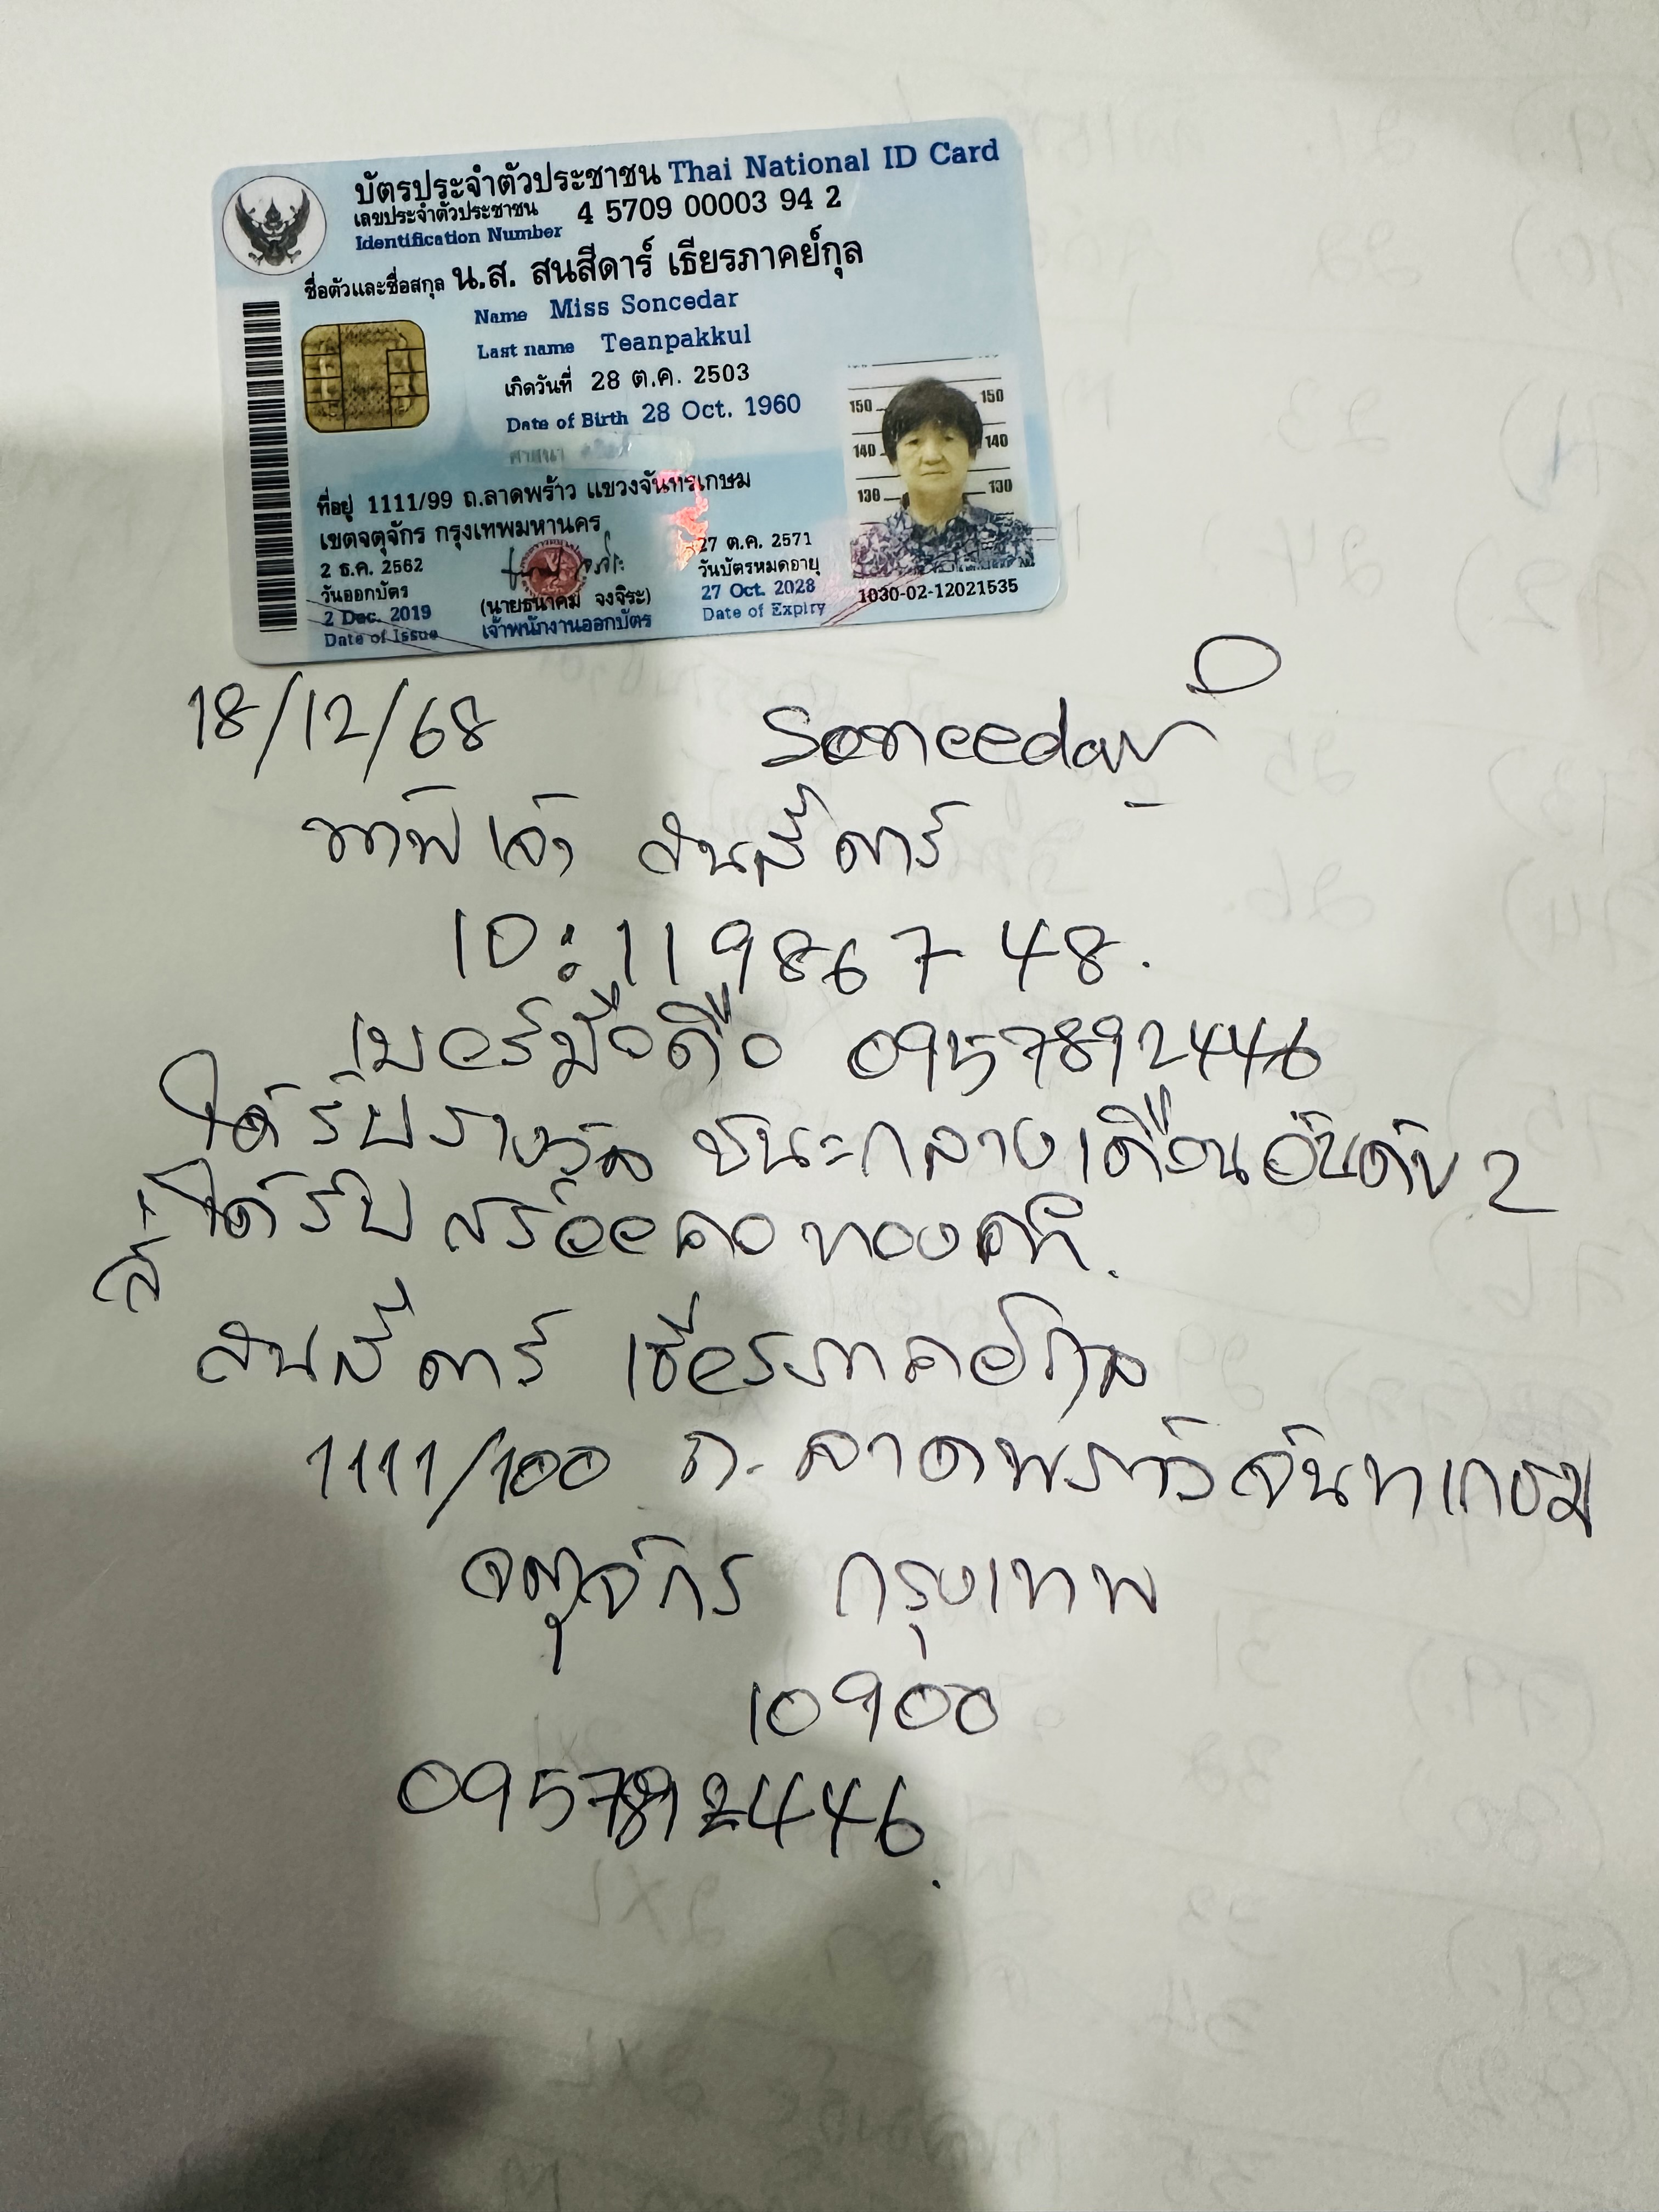 บัตรประจำตัวประชาชน Thai National ID Card
เลขประจำตัวประชาชน
Identification Number 4 5709 00003 94 2
ชื่อตัวและชื่อสกุล น.ส. สนสีดาร์ เธียรภาคย์กุล
Name Miss Soncedar
Last name Teanpakkul
เกิดวันที่ 28 ต.ค. 2503
Date of Birth 28 Oct. 1960
ศาสนา
ที่อยู่ 1111/99 ถ.ลาดพร้าว แขวงจันทรเกษม
เขตจตุจักร กรุงเทพมหานคร
2 ธ.ค. 2562
วันออกบัตร
2 Dec. 2019
Date of Issue
(นายธนาคม จงจิระ)
เจ้าพนักงานออกบัตร
27 ต.ค. 2571
วันบัตรหมดอายุ
27 Oct. 2028
Date of Expiry
150 150
140 140
130 130
1030-02-12021535
18/12/68 Sonceedar
สนสีดาร์
ID: 11986748.
เบอร์มือถือ 0957892446
ได้รับรางวัล ชนะกลางเดือนอันดับ 2
ได้รับ สร้อยคอทองคำ.
ส่ง
สนสีดาร์ เธียรภาคย์กุล
1111/100 ถ. ลาดพร้าว จันทเกษม
จตุจักร กรุงเทพ
10900
0957892446.